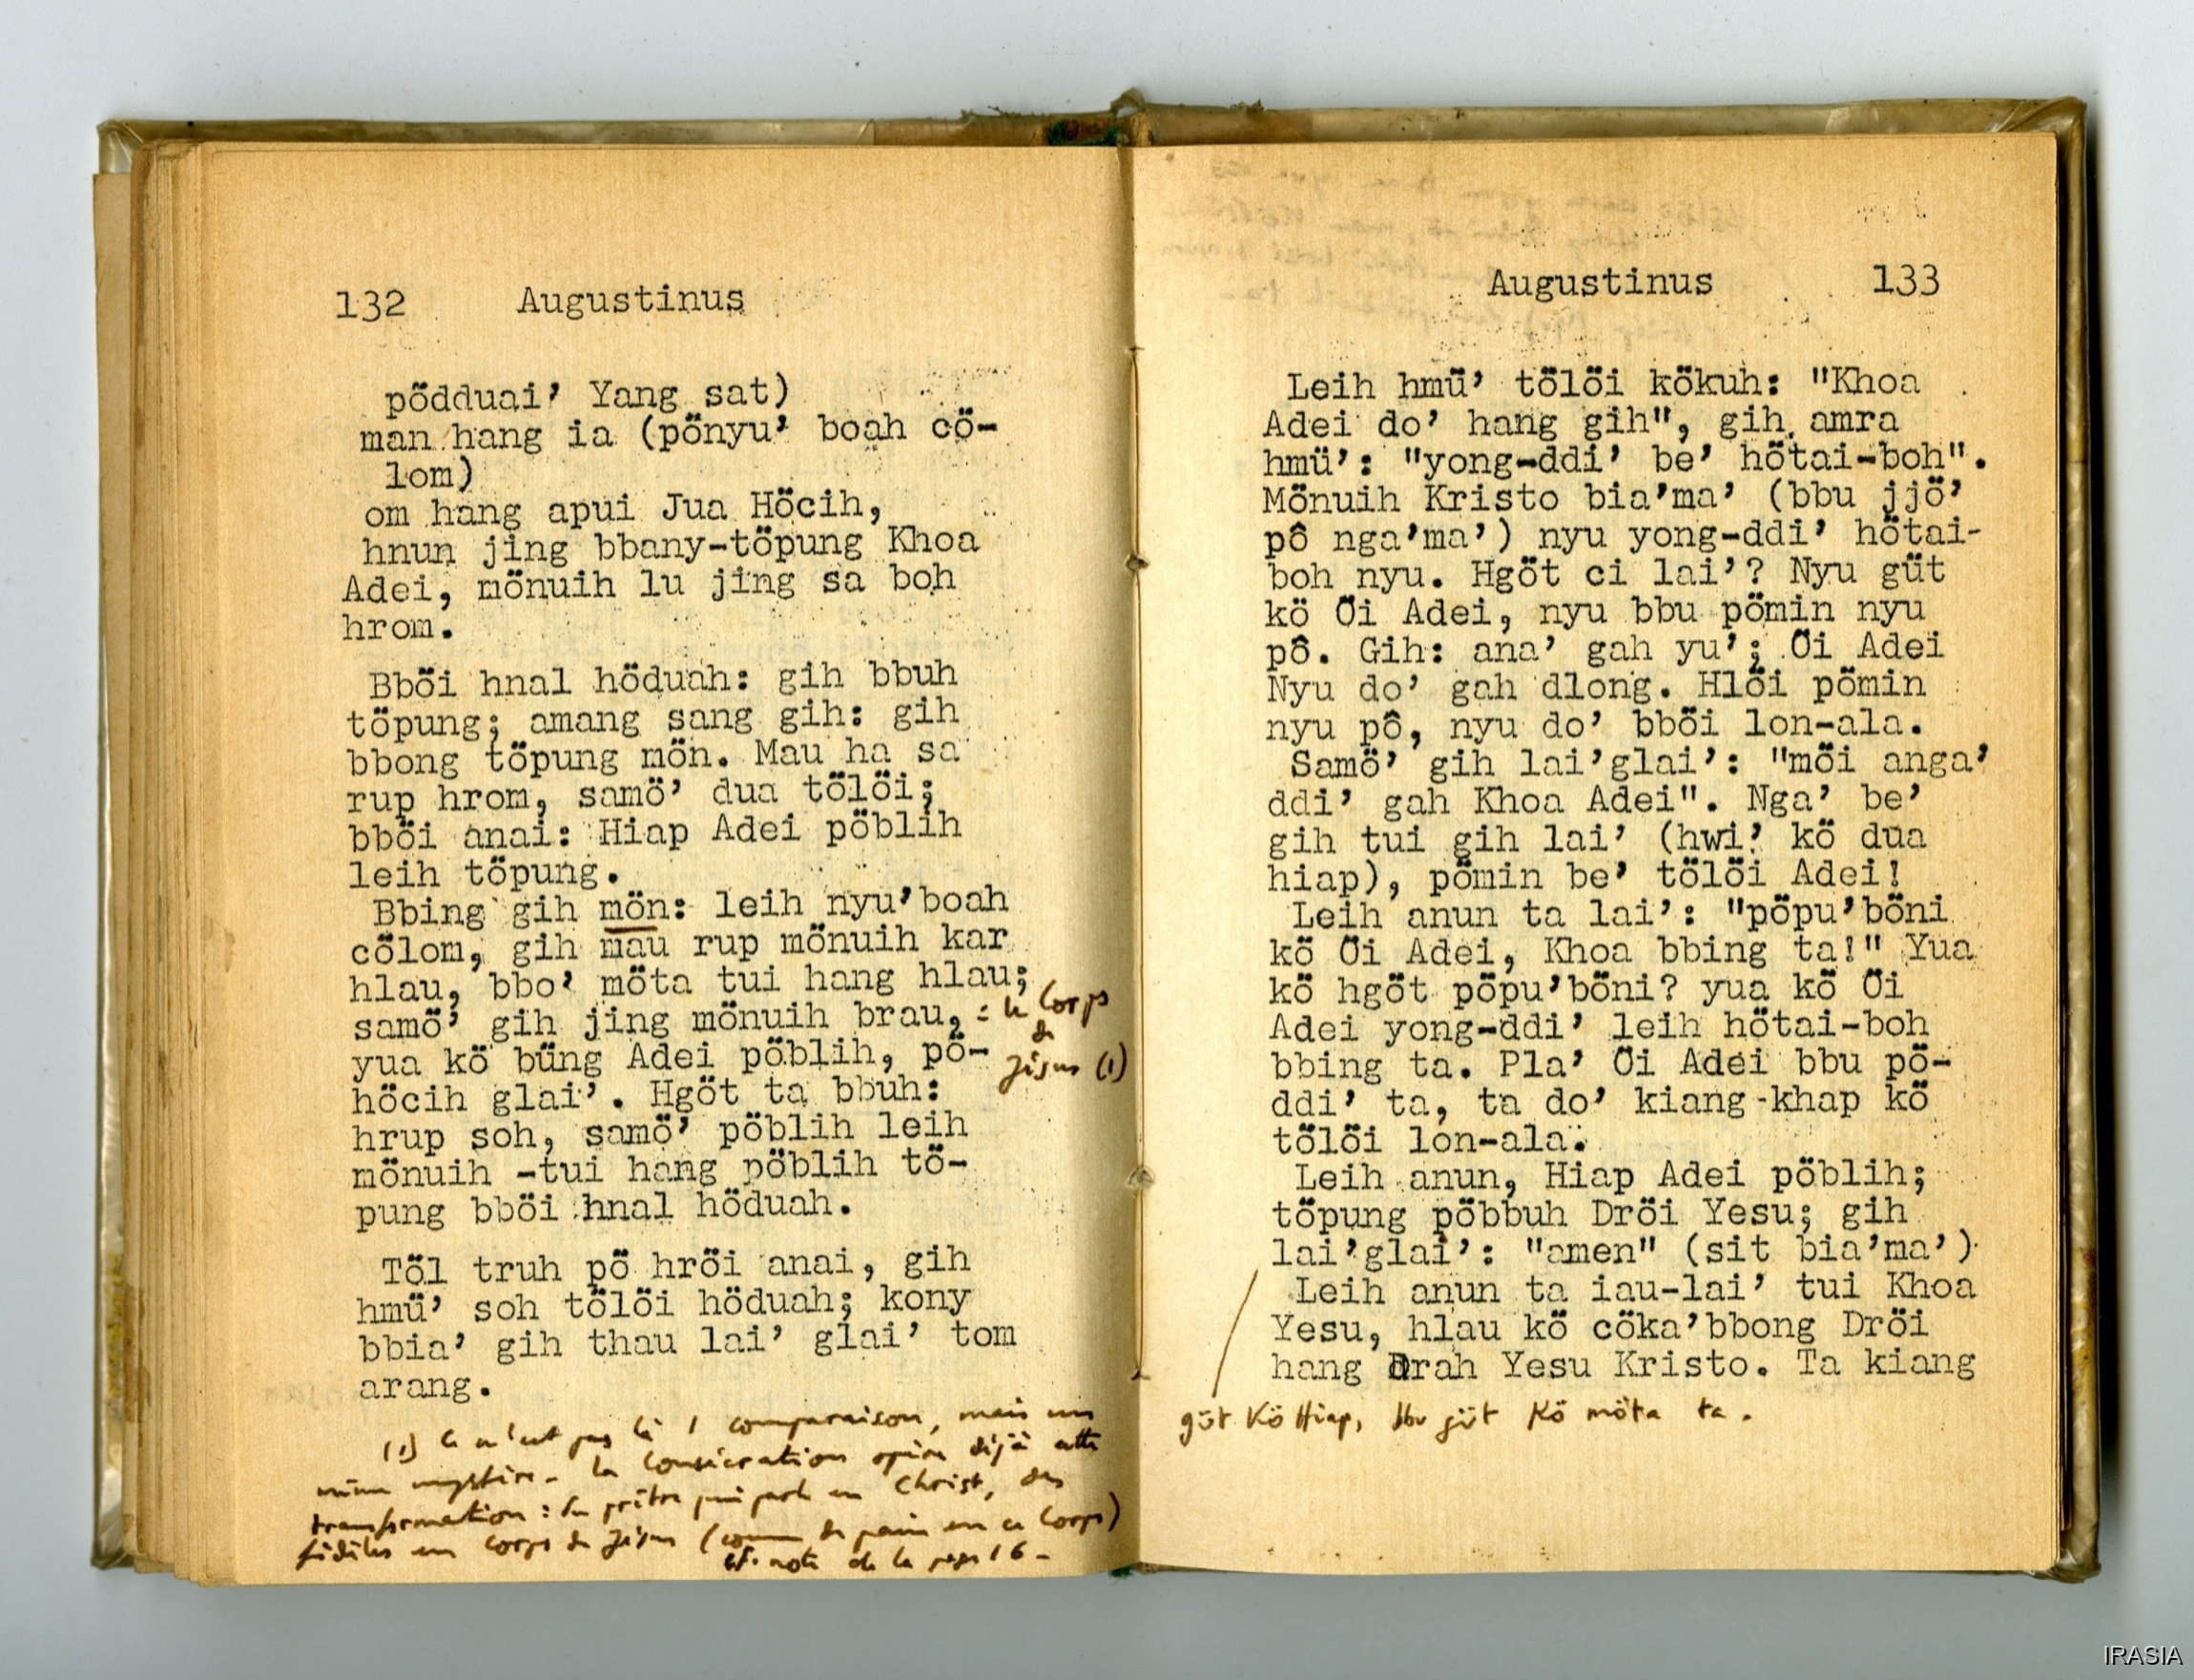 132 Augustinus
pödduai’ Yang sat)
man hang ia (pönyu’ boah cö-
lom)
om hang apui Jua Höcih,
hnun jing bbany-töpung Khoa
Adei, mönuih lu jing sa boh
hrom.
Bböi hnal höduah: gih bbuh
töpung; amang sang gih: gih
bbong töpung mön. Mau ha sa
rup hrom, samö’ dua tölöi;
bböi anai: Hiap Adei pöblih
leih töpung.
Bbing gih mön: leih nyu’boah
cölom, gih mau rup mönuih kar
hlau, bbo’ möta tui hang hlau;
samö’ gih jing mönuih brau,
yua kö büng Adei pöblih, pö-
höcih glai’. Hgöt ta bbuh:
hrup soh, samö’ pöblih leih
mönuih -tui hang pöblih tö-
pung bböi hnal höduah.
Töl truh pö hröi anai, gih
hmü’ soh tölöi höduah; kony
bbia’ gih thau lai’ glai’ tom
arang.
= le Corps
de
Jésus (1)
(1) Ce n'est pas là 1 comparaison, mais un
même mystère. La Consécration opère déjà cette
transformation: du prêtre qui parle en Christ, des
fidèles en corps de Jésus (comme du pain en ce Corps)
cf. note de la page 16 -
Augustinus 133
Leih hmü’ tölöi kökuh: "Khoa
Adei do’ hang gih", gih amra
hmü’: "yong-ddi’ be’ hötai-boh".
Mönuih Kristo bia’ma’ (bbu jjö’
pô nga’ma’) nyu yong-ddi’ hötai-
boh nyu. Hgöt ci lai’? Nyu güt
kö Öi Adei, nyu bbu pömin nyu
pô. Gih: ana’ gah yu’; Öi Adei
Nyu do’ gah dlong. Hlöi pömin
nyu pô, nyu do’ bböi lon-ala.
Samö’ gih lai’glai’: "möi anga’
ddi’ gah Khoa Adei". Nga’ be’
gih tui gih lai’ (hwi’ kö dua
hiap), pömin be’ tölöi Adei!
Leih anun ta lai’: "pöpu’böni
kö Öi Adei, Khoa bbing ta!" Yua
kö hgöt pöpu’böni? yua kö Öi
Adei yong-ddi’ leih hötai-boh
bbing ta. Pla’ Öi Adei bbu pö-
ddi’ ta, ta do’ kiang-khap kö
tölöi lon-ala.
Leih anun, Hiap Adei pöblih;
töpung pöbbuh Dröi Yesu; gih
lai’glai’: "amen" (sit bia’ma’)
Leih anun ta iau-lai’ tui Khoa
Yesu, hlau kö cöka’bbong Dröi
hang Drah Yesu Kristo. Ta kiang
güt Kö Hiap, bbu güt Kö möta ta.
IRASIA